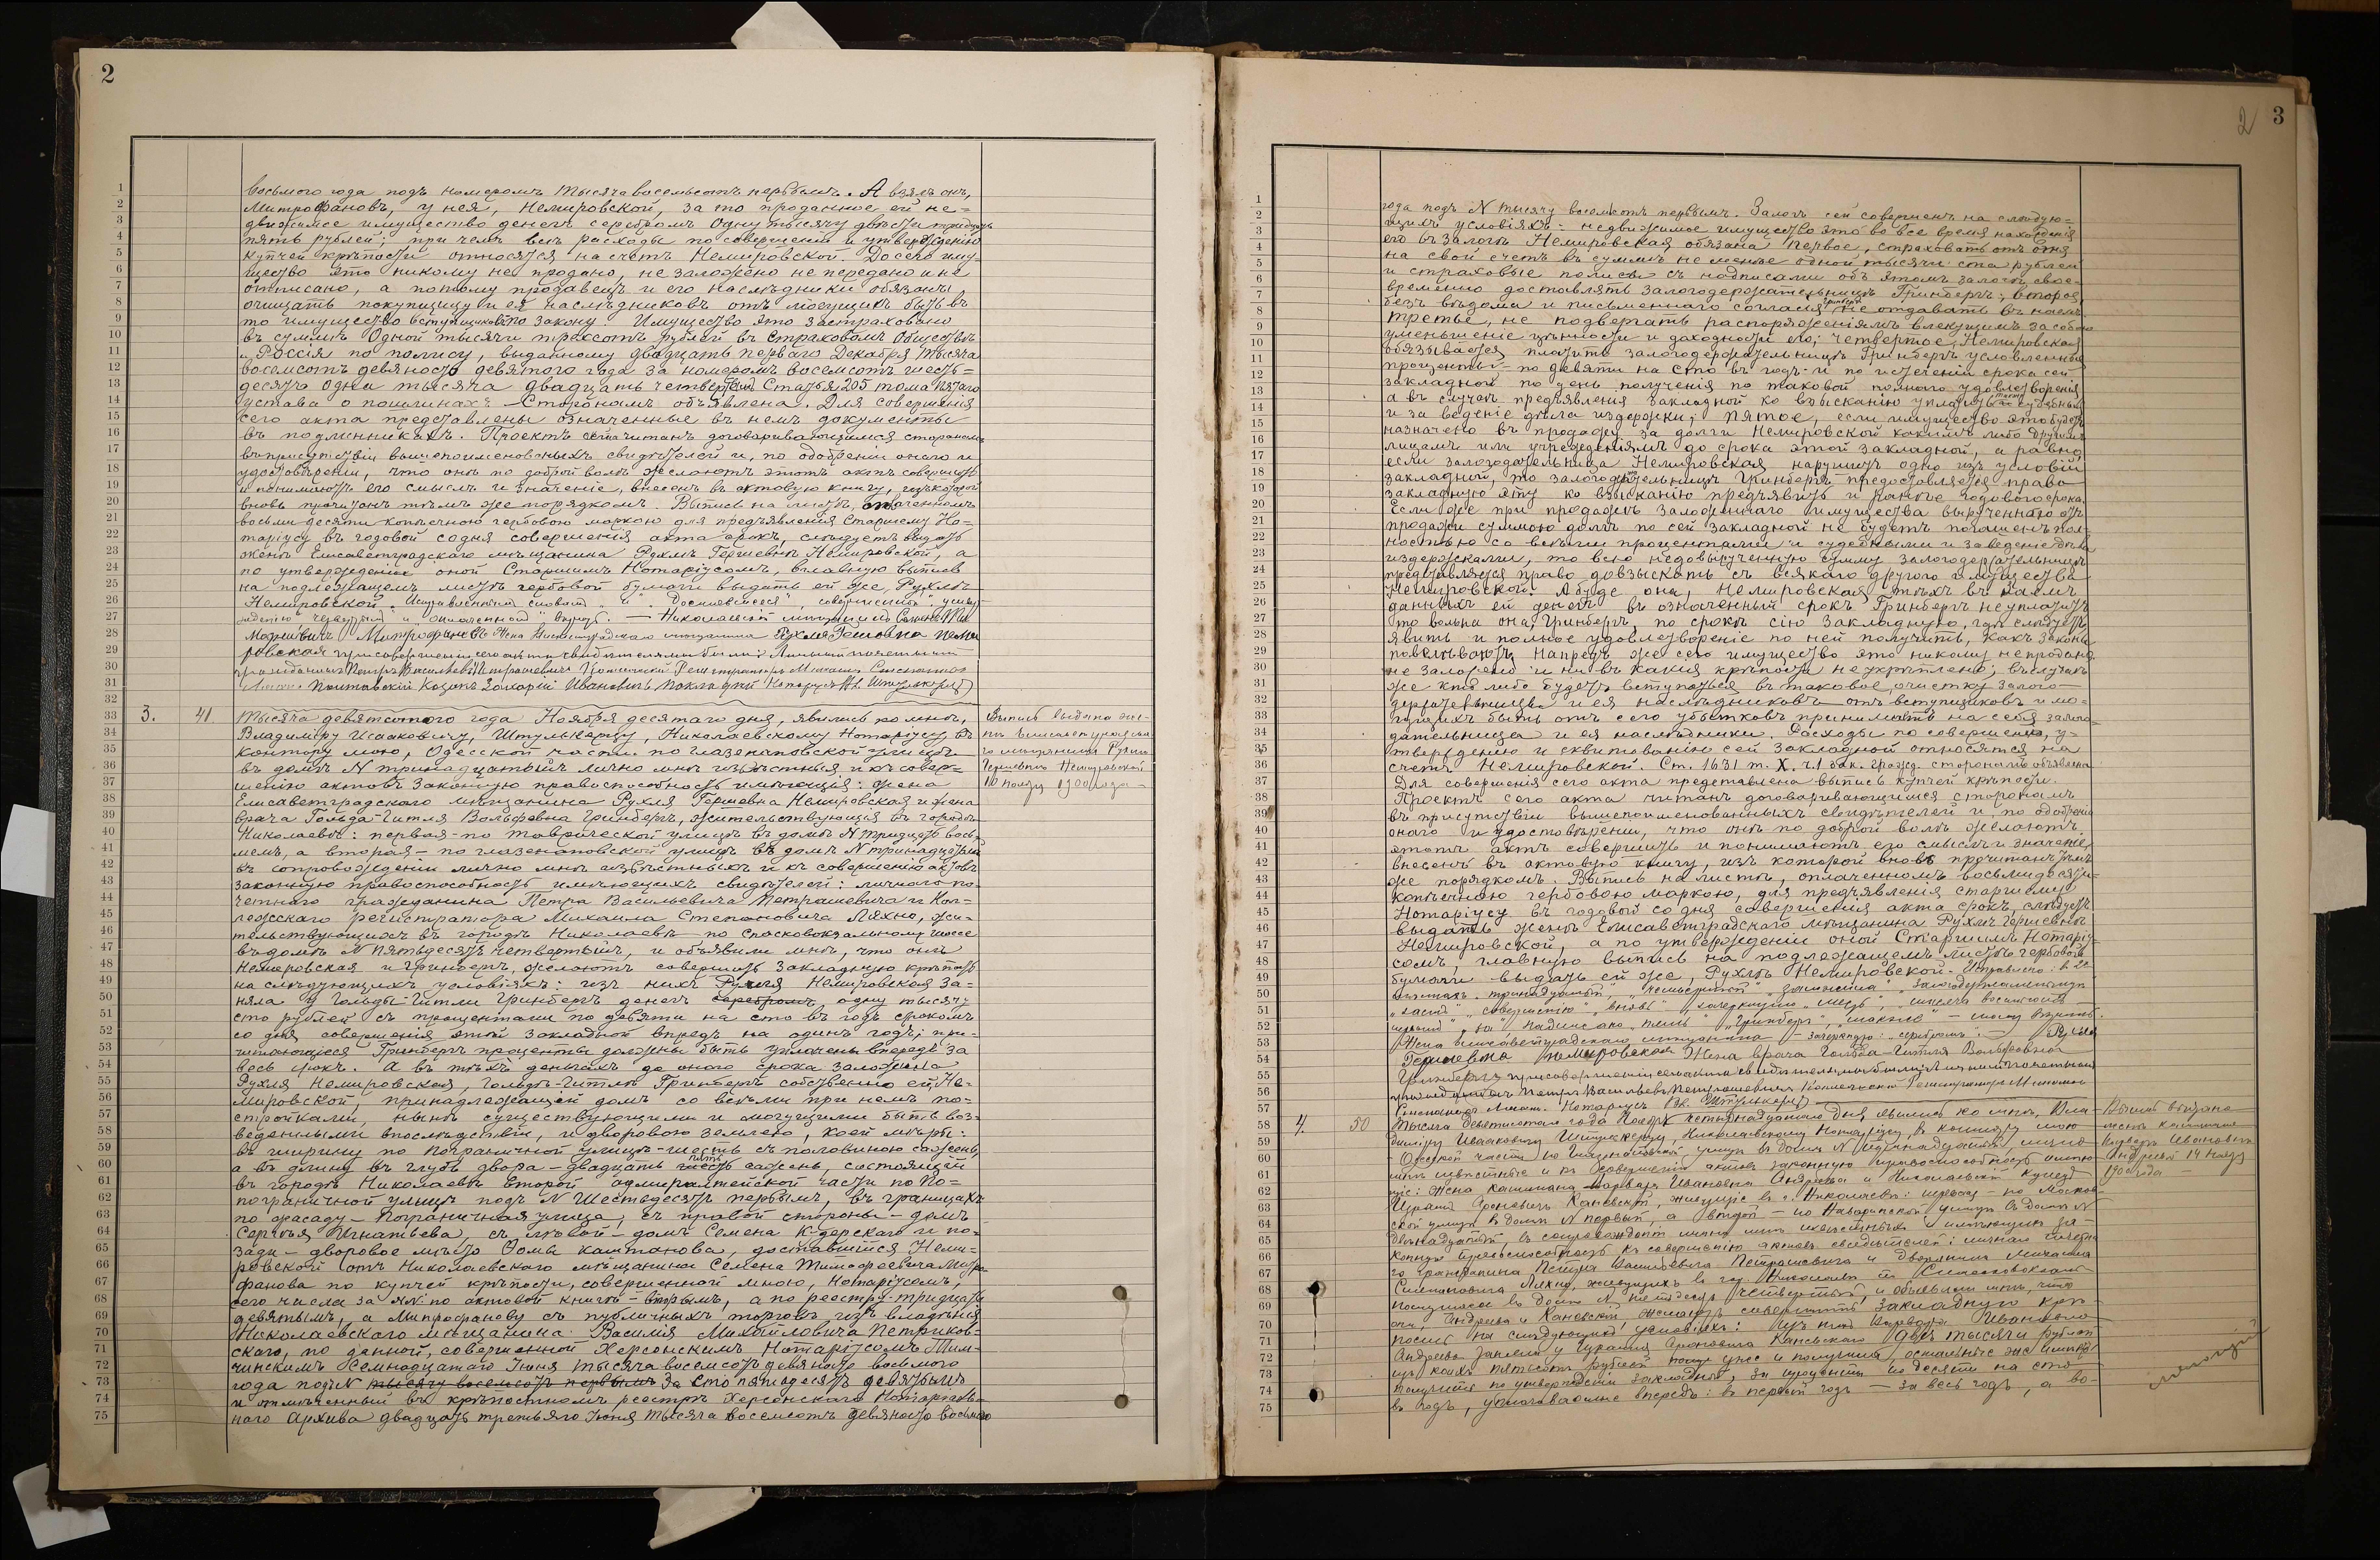 2
восьмого года подъ номеромъ тысяча восемьсотъ первымъ. А взялъ онъ,
Митрофановъ, у нея, Немировской, за то проданное ей не=
движимое имущество денегъ серебромъ Одну тысячу двѣсти тридцать
пять рублей; при чемъ всѣ расходы по совершенію и утвержденію
купчей крѣпости относятся на счетъ Немировской. До сего иму-
щество это никому не продано, не заложено не передано и не
отписано, а потому продавецъ и его наслѣдники обязаны
очищать покупщицу и ея наслѣдниковъ отъ могущихъ быть въ
то имущество вступщиковъ по закону. Имущество это застраховано
въ суммѣ Одной тысячи трехсотъ рублей въ Страховомъ Обществѣ
„Россія" по полису, выданному двадцать перваго Декабря тысяча
восемсотъ девяносто девятого года за номеромъ восемсотъ шесть=
десятъ одна тысяча двадцать четвертымъ. Статья 205 тома Пятаго
устава о пошлинахъ Сторонамъ объявлена. Для совершенія
сего акта представлены означенные въ немъ документы
въ подлинникахъ. Проектъ сей читанъ договаривающимся сторонамъ
въ присутствіи вышепоименованныхъ свидѣтелей и, по одобреніи онаго и
удостовѣреніи, что онѣ по доброй волѣ желаютъ этотъ актъ совершить
и понимаютъ его смыслъ и значеніе, внесенъ въ актовую книгу, изъ которой
вновь прочитанъ тѣмъ же порядкомъ. Выпись на листѣ, оплаченномъ
восьмидесяти копѣечною гербовою маркою для предъявленія Старшему Но-
таріусу въ годовой со дня совершенія акта срокъ, слѣдуетъ выдать
женѣ Елисаветградскаго мѣщанина Рухлѣ Гершевнѣ Немировской, а
по утвержденіи оной Старшимъ Нотаріусомъ, главную выпись
на подлежащемъ листѣ гербовой бумаги выдать ей же, Рухлѣ
Немировской. Исправленныя слова:
„четвертымъ" и „оплаченномъ" вѣрны. — Николаевскій мѣщанинъ Семенъ Ти-
мофѣевичъ Митрофановъ Жена Елисаветградскаго мѣщанина Рухля Гершовна Неми
ровская При совершеніи сего акта свидѣтелями были: Личный почетный
гражданинъ Петръ Васильевъ Петрашевичъ Коллежскій Регистраторъ Михаилъ Степановъ
Полтавскій Козакъ Захарій Ивановичъ Покладкій Нотаріусъ Вл. Штулькерцъ
3.
41.
Тысяча девятисотого года Ноября десятаго дня, явились ко мнѣ,
Владиміру Исааковичу, Штулькерцу, Николаевскому Нотаріусу, въ
контору мою, Одесской части по Глазенаповской улицѣ
въ домѣ N тринадцатымъ лично мнѣ извѣстныя и къ совер=
шенію актовъ законную правоспособность имѣющія: жена
Елисаветградскаго мѣщанина Рухля Гершевна Немировская и жена
врача Гольда-Гитля Вольфовна Гринбергъ, жительствующія въ городѣ
Николаевѣ: первая - по Таврической улицѣ въ домѣ N тридцать вось-
мемъ, а вторая - по Глазенаповской улицѣ въ домѣ N тринадцатымъ
въ сопровожденіи лично мнѣ извѣстныхъ и къ совершенію актовъ
законную правоспособность имѣющихъ свидѣтелей: личнаго по-
четнаго гражданина Петра Васильевича Петрашевича и Кол-
лежскаго регистратора Михаила Степановича Ляхно, жи-
тельствующихъ въ городѣ Николаевѣ по Спасковокзальному шоссе
въ домѣ N пятьдесятъ четвертымъ, и объявили мнѣ, что онѣ
Немировская и Гринбергъ, желаютъ совершить закладную крѣпость
на слѣдующихъ условіяхъ: изъ нихъ Рухля Немировская за-
няла у Гольды-Гитли Гринбергъ денегъ серебромъ, одну тысячу
сто рублей съ процентами по девяти на сто въ годъ срокомъ
со дня совершенія этой закладной впредь на одинъ годъ; при-
читающіеся Гринбергъ проценты должны быть уплачены впередъ за
весь срокъ. А въ тѣхъ деньгахъ до оного срока заложила
Рухля Немировская, Гольдѣ-Гитлѣ Гринбергъ собственно ей Не-
мировской, принадлежащій домъ со всѣми при немъ по-
стройками, нынѣ существующими и могущими быть воз-
веденными впослѣдствіи, и дворовою землею, коей мѣры:
въ ширину по Пограничной улицѣ - шесть съ половиною саженъ,
а въ длину въ глубь двора - двадцать шесть пять саженъ, состоящій
въ городѣ Николаевѣ Второй адмиралтейской части по По=
граничной улицѣ подъ N Шестьдесятъ первымъ, въ границахъ:
по фасаду - Пограничная улица, съ правой стороны - домъ
Сергѣя Игнатьева, съ лѣвой - домъ Семена Кудерскаго и по-
зади - дворовое мѣсто Фомы Каштанова, доставшійся Неми-
ровской отъ Николаевскаго мѣщанина Семена Тимофѣевича Митро
фанова по купчей крѣпости, совершенной мною, Нотаріусомъ,
сего числа за NN: по актовой книгѣ - вторымъ, а по реестру - тридцать
девятымъ, а Митрофанову съ публичныхъ торговъ изъ владѣнія
Николаевскаго мѣщанина Василія Михайловича Петриков-
скаго, по данной, совершенной Херсонскимъ Нотаріусомъ Тим-
чинскимъ Семнадцатаго Іюня тысяча восемсотъ девяносто восьмого
года подъ N тысячу восемсотъ первымъ за сто пятидесятъ девятымъ
и отмѣченный въ крѣпостномъ реестрѣ Херсонскаго Нотаріаль-
наго Архива двадцать третьяго Іюня тысяча восемсотъ девяносто восьмого
Выпись выдана же-
нѣ Елисаветградска
го мѣщанина Рухли
Гершевнѣ Немировской
10 Ноября 1900 года -
2
3
года подъ N тысячу восемсотъ первымъ. Залогъ сей совершенъ на слѣдую=
щихъ условіяхъ: недвижимое имущество это во все время нахожденія
его въ залогѣ Немировская обязана первое, страховать отъ огня
на свой счетъ въ суммѣ не менѣе одной тысячи ста рублей
и страховые полисы съ надписями объ этомъ залогѣ свое-
временно доставлять залогодержательницѣ Гринбергъ; второе,
безъ вѣдома и письменнаго согласія Гринбергъ не отдавать въ наемъ
третье, не подвергать распоряженіямъ влекущимъ за собою
уменьшеніе цѣнности и доходности его; четвертое, Немировская
обязывается платить залогодержательницѣ Гринбергъ условленные
проценты - по девяти на сто въ годъ и по истеченіи срока сей
закладной по день полученія по таковой полнаго удовлетворенія
а въ случаѣ предъявленія закладной ко взысканію уплатить также судебныя
и за веденіе дѣла издержки; пятое, если имущество это будетъ
назначено въ продажу за долги Немировской какимъ либо другимъ
лицамъ или учрежденіямъ до срока этой закладной, а равно
если залогодательница Немировская нарушитъ одно изъ условій
закладной, то залогодержательницѣ Гринбергъ предоставляется право
закладную эту ко взысканію предъявить и ранѣе годового срока
Если же при продажѣ заложеннаго имущества вырученною отъ
продажи суммою долгъ по сей закладной не будетъ погашенъ пол-
ностью со всѣми процентами и судебными и за веденіе дѣла
издержками, то всю недовырученную сумму залогодержательницѣ
предоставляется право довзыскать съ всякаго другого имущества
Немировской. А буде она, Немировская тѣхъ въ заемъ
данныхъ ей денегъ въ означенный срокъ Гринбергъ не уплатитъ
то вольна она, Гринбергъ, по срокѣ сію закладную, гдѣ слѣдуетъ
явить и полное удовлетвореніе по ней получить, какъ законы
повелѣваютъ. Напредь же сего имущество это никому не продано
не заложено и ни въ какія крѣпости не укрѣплено; въ случаѣ
же кто либо будетъ вступаться въ таковое, очистку залого-
держательницы и ея наслѣдниковъ отъ вступщиковъ и мо-
гущихъ быть отъ сего убытковъ принимаетъ на себя залого-
дательница и ея наслѣдники. Расходы по совершенію, у-
твержденію и сквитованію сей закладной относятся на
счетъ Немировской. Ст. 1631 т. X. ч. 1 зак. гражд. сторонамъ объявлена
Для совершенія сего акта представлена выпись купчей крѣпости.
Проектъ сего акта читанъ договаривающимся сторонамъ
въ присутствіи вышепоименованныхъ свидѣтелей и, по одобреніи
онаго и удостовѣреніи, что онѣ по доброй волѣ желаютъ
этотъ актъ совершить и понимаютъ его смыслъ и значеніе,
внесенъ въ актовую книгу, изъ которой вновь прочитанъ тѣмъ
же порядкомъ. Выпись на листѣ, оплаченномъ восьмидесяти-
копѣечною гербовою маркою, для предъявленія старшему
Нотаріусу въ годовой со дня совершенія акта срокъ, слѣдуетъ
выдать женѣ Елисаветградскаго мѣщанина Рухлѣ Гершевнѣ
Немировской, а по утвержденіи оной Старшимъ Нотаріу-
сомъ, главную выпись на подлежащемъ листѣ гербовой
бумаги выдать ей же, Рухлѣ Немировской. Исправлено:
Надписано „пять" „Гринбергъ", „также" - вѣрить.
Жена Елисаветградскаго мѣщанина — зачеркнуто: „серебромъ". — Рухля
Гершевна Немировская Жена врача Гольда-Гитля Вольфовна
Гринбергъ При совершеніи сего акта свидѣтелями были: Личный почетный
гражданинъ Петръ Васильевъ Петрашевичъ Коллежскій Регистраторъ Михаилъ
Степановъ Ляхно. Нотаріусъ Вл. Штулькерцъ
4.
50
Тысяча девятисотаго года Ноября четырнадцатаго дня явились ко мнѣ, Вла-
диміру Исааковичу Штулькерцу, Николаевскому Нотаріусу, въ контору мою
Одесской части по Глазенаповской улицѣ въ домѣ N тринадцатый, лично
мнѣ извѣстные и къ совершенію актовъ законную правоспособность имѣю-
щіе: Жена капитана Варвара Ивановна Андреева и Николаевскій купецъ
Израиль Ароновичъ Каневскій, живущіе въ г. Николаевѣ: первая - по Москов-
ской улицѣ въ домѣ N первый, а второй - по Наваринской улицѣ въ домѣ N
двѣнадцатый, въ сопровожденіи лично мнѣ извѣстныхъ и имѣющихъ за-
конную правоспособность къ совершенію актовъ свидѣтелей: личнаго почетна
го гражданина Петра Васильевича Петрашевича и Дворянина Михаила
Степановича Ляхно, живущихъ въ гор. Николаевѣ по Спасковокзаль
ному шоссе въ домѣ N пятьдесятъ четвертый, и объявили мнѣ, что
они, Андреева и Каневскій желаютъ совершить закладную крѣ-
пость на слѣдующихъ условіяхъ: Изъ нихъ Варвара Ивановна
Андреева заняла у Израиля Ароновича Каневскаго Двѣ тысячи рублей
изъ коихъ пятьсотъ рублей уже и получила, остальные же имѣетъ
получить по утвержденіи закладной, за проценты по десяти на сто
въ годъ, уплачиваемые впередъ: въ первый годъ — за весь годъ, а во-
Выпись выдана
женѣ капитана
Варварѣ Ивановнѣ
Андреевой 14 Ноября
1900 года —